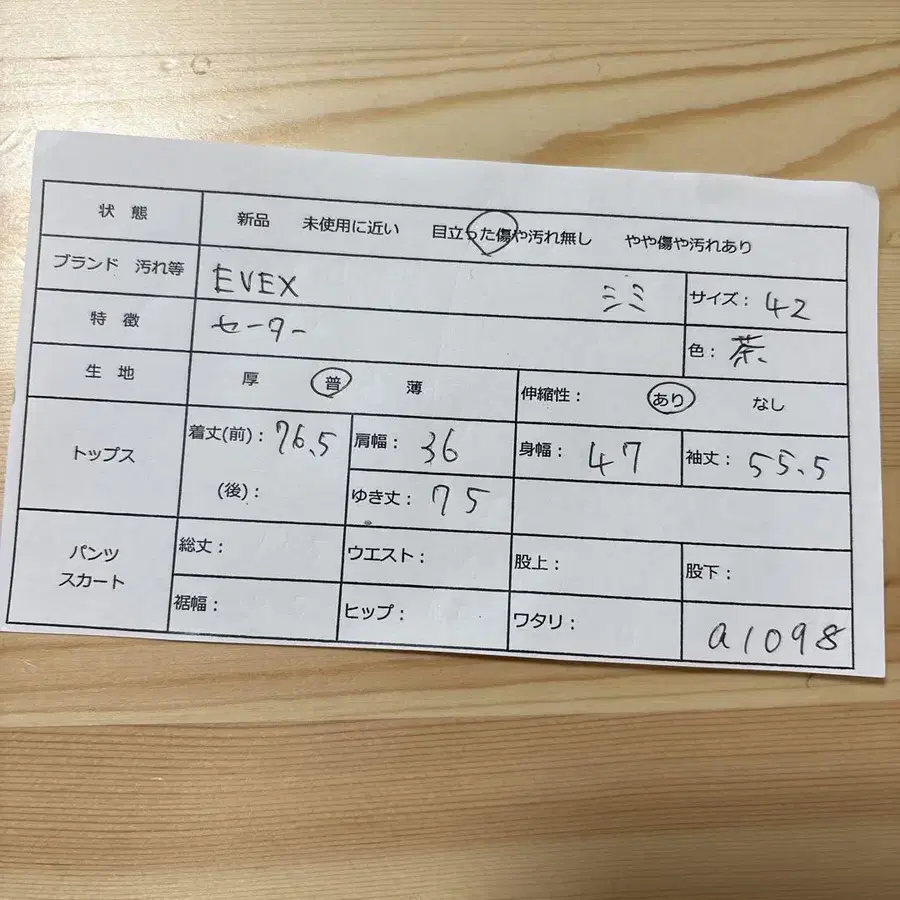 状 態 新品 未使用に近い 目立った傷や汚れ無し やや傷や汚れあり
ブランド 汚れ等 EVEX シミ サイズ： 42
特 徴 セーター 色： 茶、
生 地 厚 普 薄 伸縮性： あり なし
トップス 着丈(前)： 76.5 肩幅： 36 身幅： 47 袖丈： 55.5
(後)： ゆき丈： 75
パンツ スカート 総丈： ウエスト： 股上： 股下：
裾幅： ヒップ： ワタリ： a1098